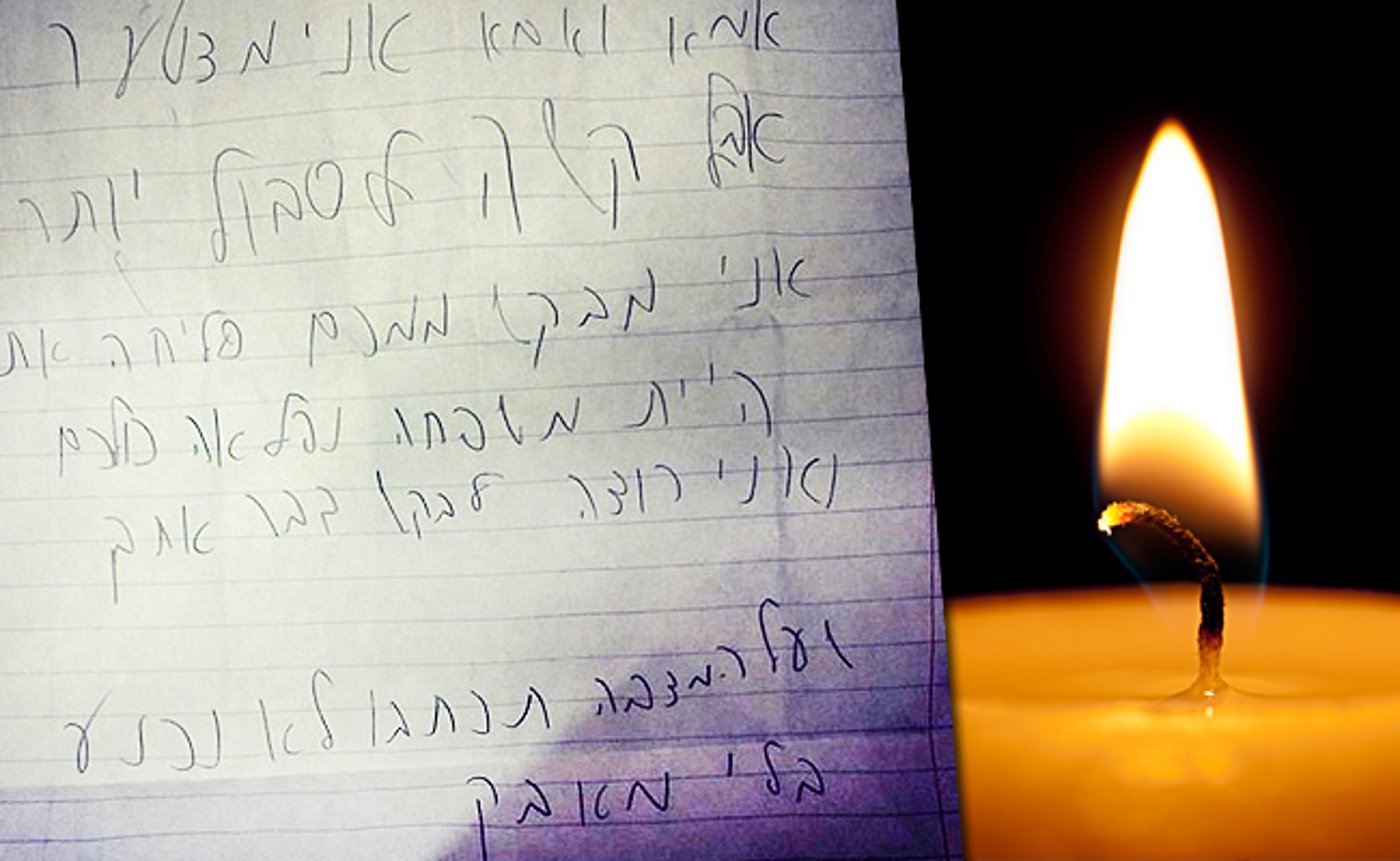 אמא ואבא אני מצטער
אבל קשה לסבול יותר
אני מבקש ממכם סליחה את
היית משפחה נפלאה כולכם
ואני רוצה לבקש דבר אחד
ועל המצבה תכתבו לא נכנע
בלי מאבק